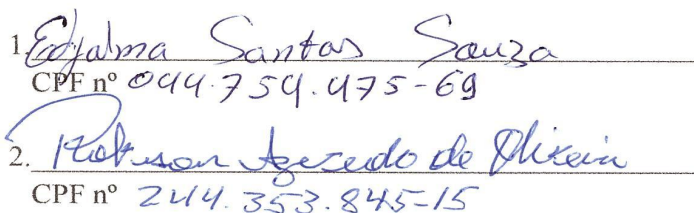 1. Edjalma Santos Souza
CPF nº 044.754.475-69
2. Robison Azevedo de Oliveira
CPF nº 244.353.845-15